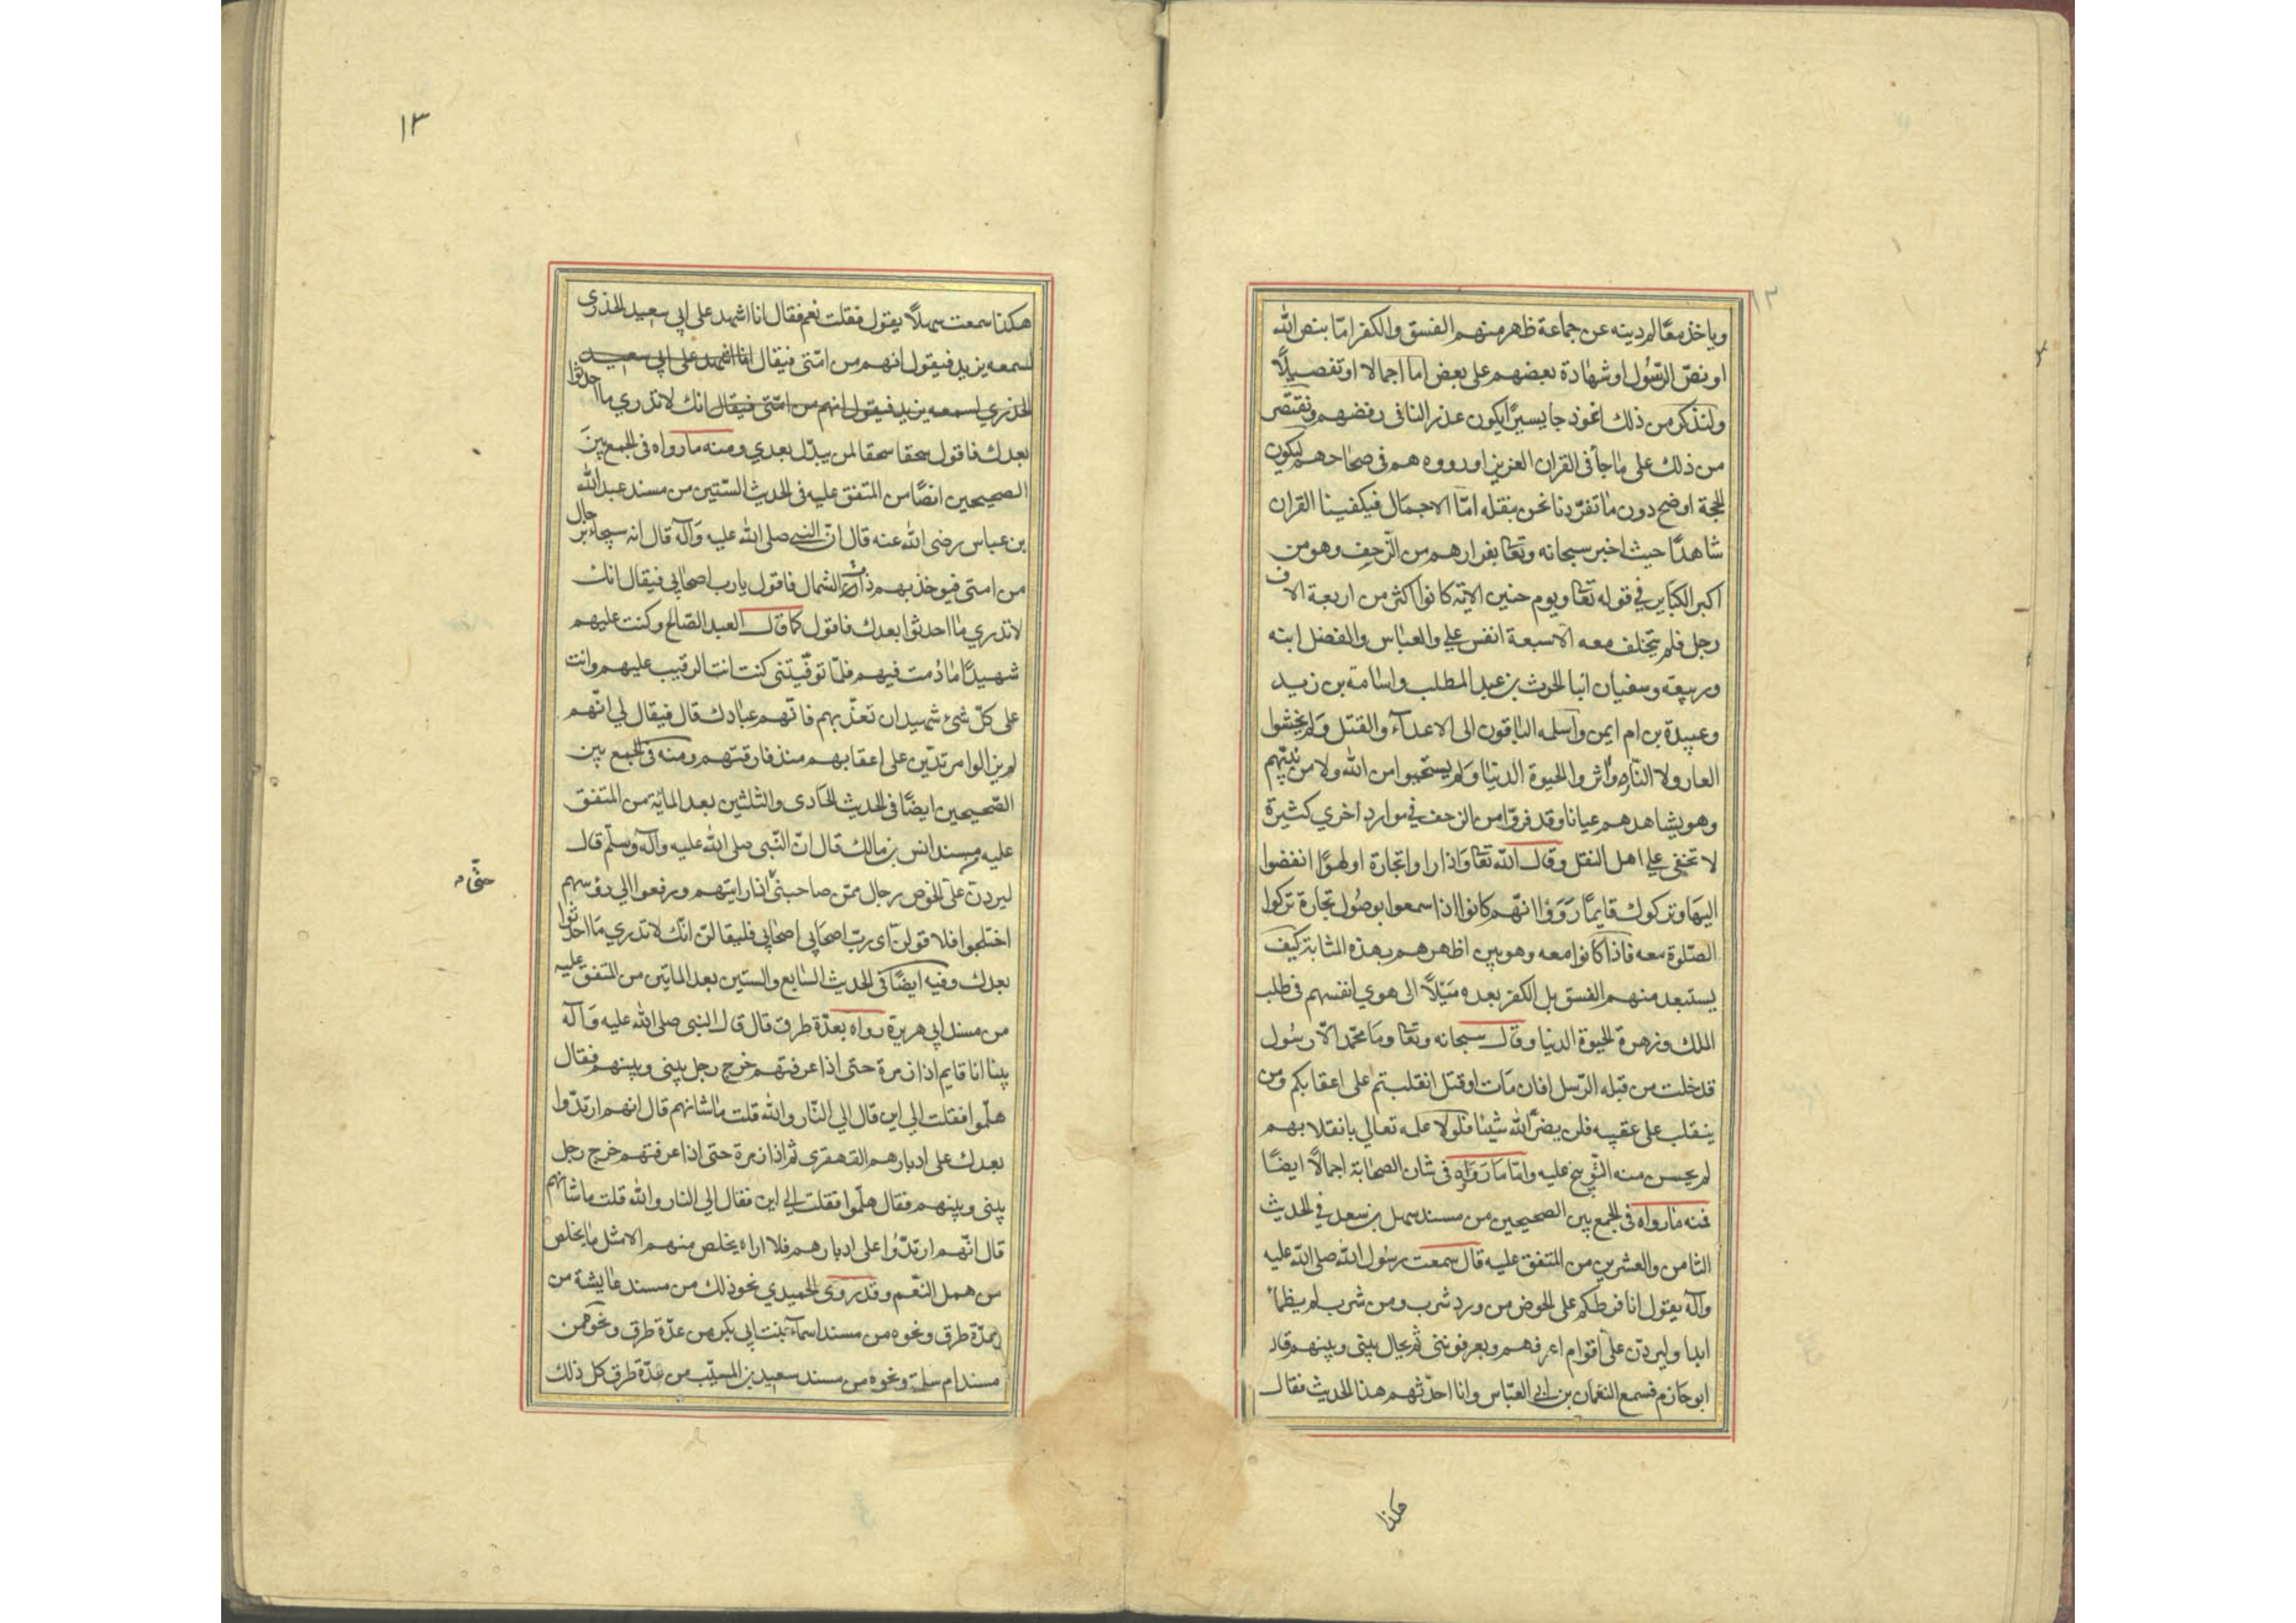 ١٢
وياخذ معالم دينه عن جماعة ظهر منهم الفسق والكفر امّا بنص الله
او نصّ الرّسُول او شهادة بعضهم على بعض اما اجمالا او تفصيلًا
ولنذكر من ذلك انموذجا يسيرًا يكون عذر النا فى رفضهم ونقتصر
من ذلك على ما جأ فى القران العزيز او رووه هم فى صحاحهم ليكون
الحجة اوضح دون ما تفرّدنا نحن بنقله امّا الاجمال فيكفينا القران
شاهدًا حيث اخبر سبحانه وتعا بفرارهم من الزحف وهو من
اكبر الكباير في قوله تعا ويوم حنين الاية كانوا اكثر من اربعة الاف
رجل فلم يتخلف معه الا سبعة انفس علي والعباس والفضل ابنه
وربيعة وسفيان ابنا الحرث بن عبد المطلب واسامة بن زيد
وعبيدة بن ام ايمن واسلمه الباقون الى الاعدآء والقتل ولم يخشوا
العار ولا النار واثروا الحيوة الدنيا ولم يستحيوا من الله ولا من نبيّهم
وهو يشاهدهم عيانا وقد فرّوا من الزحف في موارد اخري كثيرة
لا تخفى علي اهل النقل وقال الله تعا واذا راوا تجارة او لهوًا انفضوا
اليها وتركوك قايمًا رَوَوْا انّهم كانوا اذا سمعوا بوصُول تجارة تركوا
الصّلوة معه فاذا كانوا معه وهو بين اظهرهم بهذه المثابة كيف
يستبعد منهم الفسق بل الكفر بعده مَيْلًا الى هوي انفسهم فى طلب
الملك وزهرة الحيوة الدنيا وقال سبحانه وتعا وما محمّد الّا رسُول
قد خلت من قبله الرّسل افان مَات او قتل انقلبتم على اعقابكم ومن
ينقلب على عقبيه فلن يضرّ الله شيئا فلولا علمه تعالي بانقلابهم
لم يحسن منه التّوبيخ عليه وامّا مَا رَوَاه فى شان الصحابة اجمالًا ايضًا
فمنه ما رواه فى الجمع بين الصحيحين من مسند سهل بن سعد في الحديث
الثامن والعشرين من المتفق عليه قال سمعت رسُول الله صلى الله عليه
وآله يقول انا فرطكم على الحوض من ورد شرب ومن شرب لم يظمأ
ابدا وليردّن علىّ اقوام اعرفهم ويعرفوننى ثم يحال بينى وبينهم قال
ابو حازم فسمع النعمان بن ابى العبّاس وانا احدّثهم هذا الحديث فقال
هكذا
١٣
هكذا سمعت سهلًا يقول فقلت نعم فقال انا اشهد على ابى سعيد الخذرى
لسمعه يزيد فيقول انهم من امّتى فيقال انا اشهد على ابى سعيد
الخذري لسمعه يزيد فيقول انهم من امّتى فيقال انك لا تدري ما احدثوا
بعدك فاقول سحقا سحقا لمن يبدّل بعدي ومنه ما رواه فى الجمع بين
الصحيحين ايضًا من المتفق عليه فى الحديث السّتين من مسند عبد الله
بن عباس رضى الله عنه قال انّ النبي صلى الله عليه وَآله قال انه سيجاء برجال
من امتى فيوخذ بهم ذات الشمال فاقول يارب اصحابى فيقال انك
لا تدري ما احدثوا بعدك فاقول كما قال العبد الصّالح وكنت عليهم
شهيدًا مَا دُمت فيهم فلمّا توفّيتنى كنت انت الرقيب عليهم وانت
على كلّ شئ شهيد ان تعذّبهم فانّهم عبادك قال فيقال لي انّهم
لم يزالوا مرتدّين على اعقابهم منذ فارقتهم ومنه فى الجمع بين
الصّحيحين ايضًا فى الحديث الحَادى والثلثين بعد المائة من المتفق
عليه من مسند انس بن مالك قال انّ النّبى صلى الله عليه وآله وسلّم قال
ليردنّ علىّ الحوض رجال ممّن صاحبنى اذا رايتهم ورفعوا الي رؤسهم
حتّى
اختلجوا فلا قولنّ اى ربّ اصحابى اصحابى فليقالنّ انّك لا تدري مَا احدثوا
بعدك وفيه ايضًا فى الحديث السّابع والستين بعد الماتين من المتفق عليه
من مسند ابى هريرة رواه بعدّة طرق قال قال النبى صلى الله عليه وَآله
بينا انا قايم اذا زمرة حتى اذا عرفتهم خرج رجل بينى وبينهم فقال
هلّموا فقلت الي اين قال الي النّار والله قلت ما شانهم قال انهم ارتدّوا
بعدك على ادبارهم القهقرى ثم اذا زمرة حتى اذا عرفتهم خرج رجل
بينى وبينهم فقال هلّموا فقلت الي اين فقال الي النار والله قلت ما شانهم
قال انّهم ارتدّوا على ادبارهم فلا اراه يخلص منهم الا مثل ما يخلص
من همل النّعم وقد روى الحميدي نحو ذلك من مسند عايشة من
عدّة طرق ونحوه من مسند اسمآء بنت ابى بكر من عدّة طرق ونحوه من
مسند ام سلمة ونحوه من مسند سعيد بن المسيّب من عدّة طرق كل ذلك